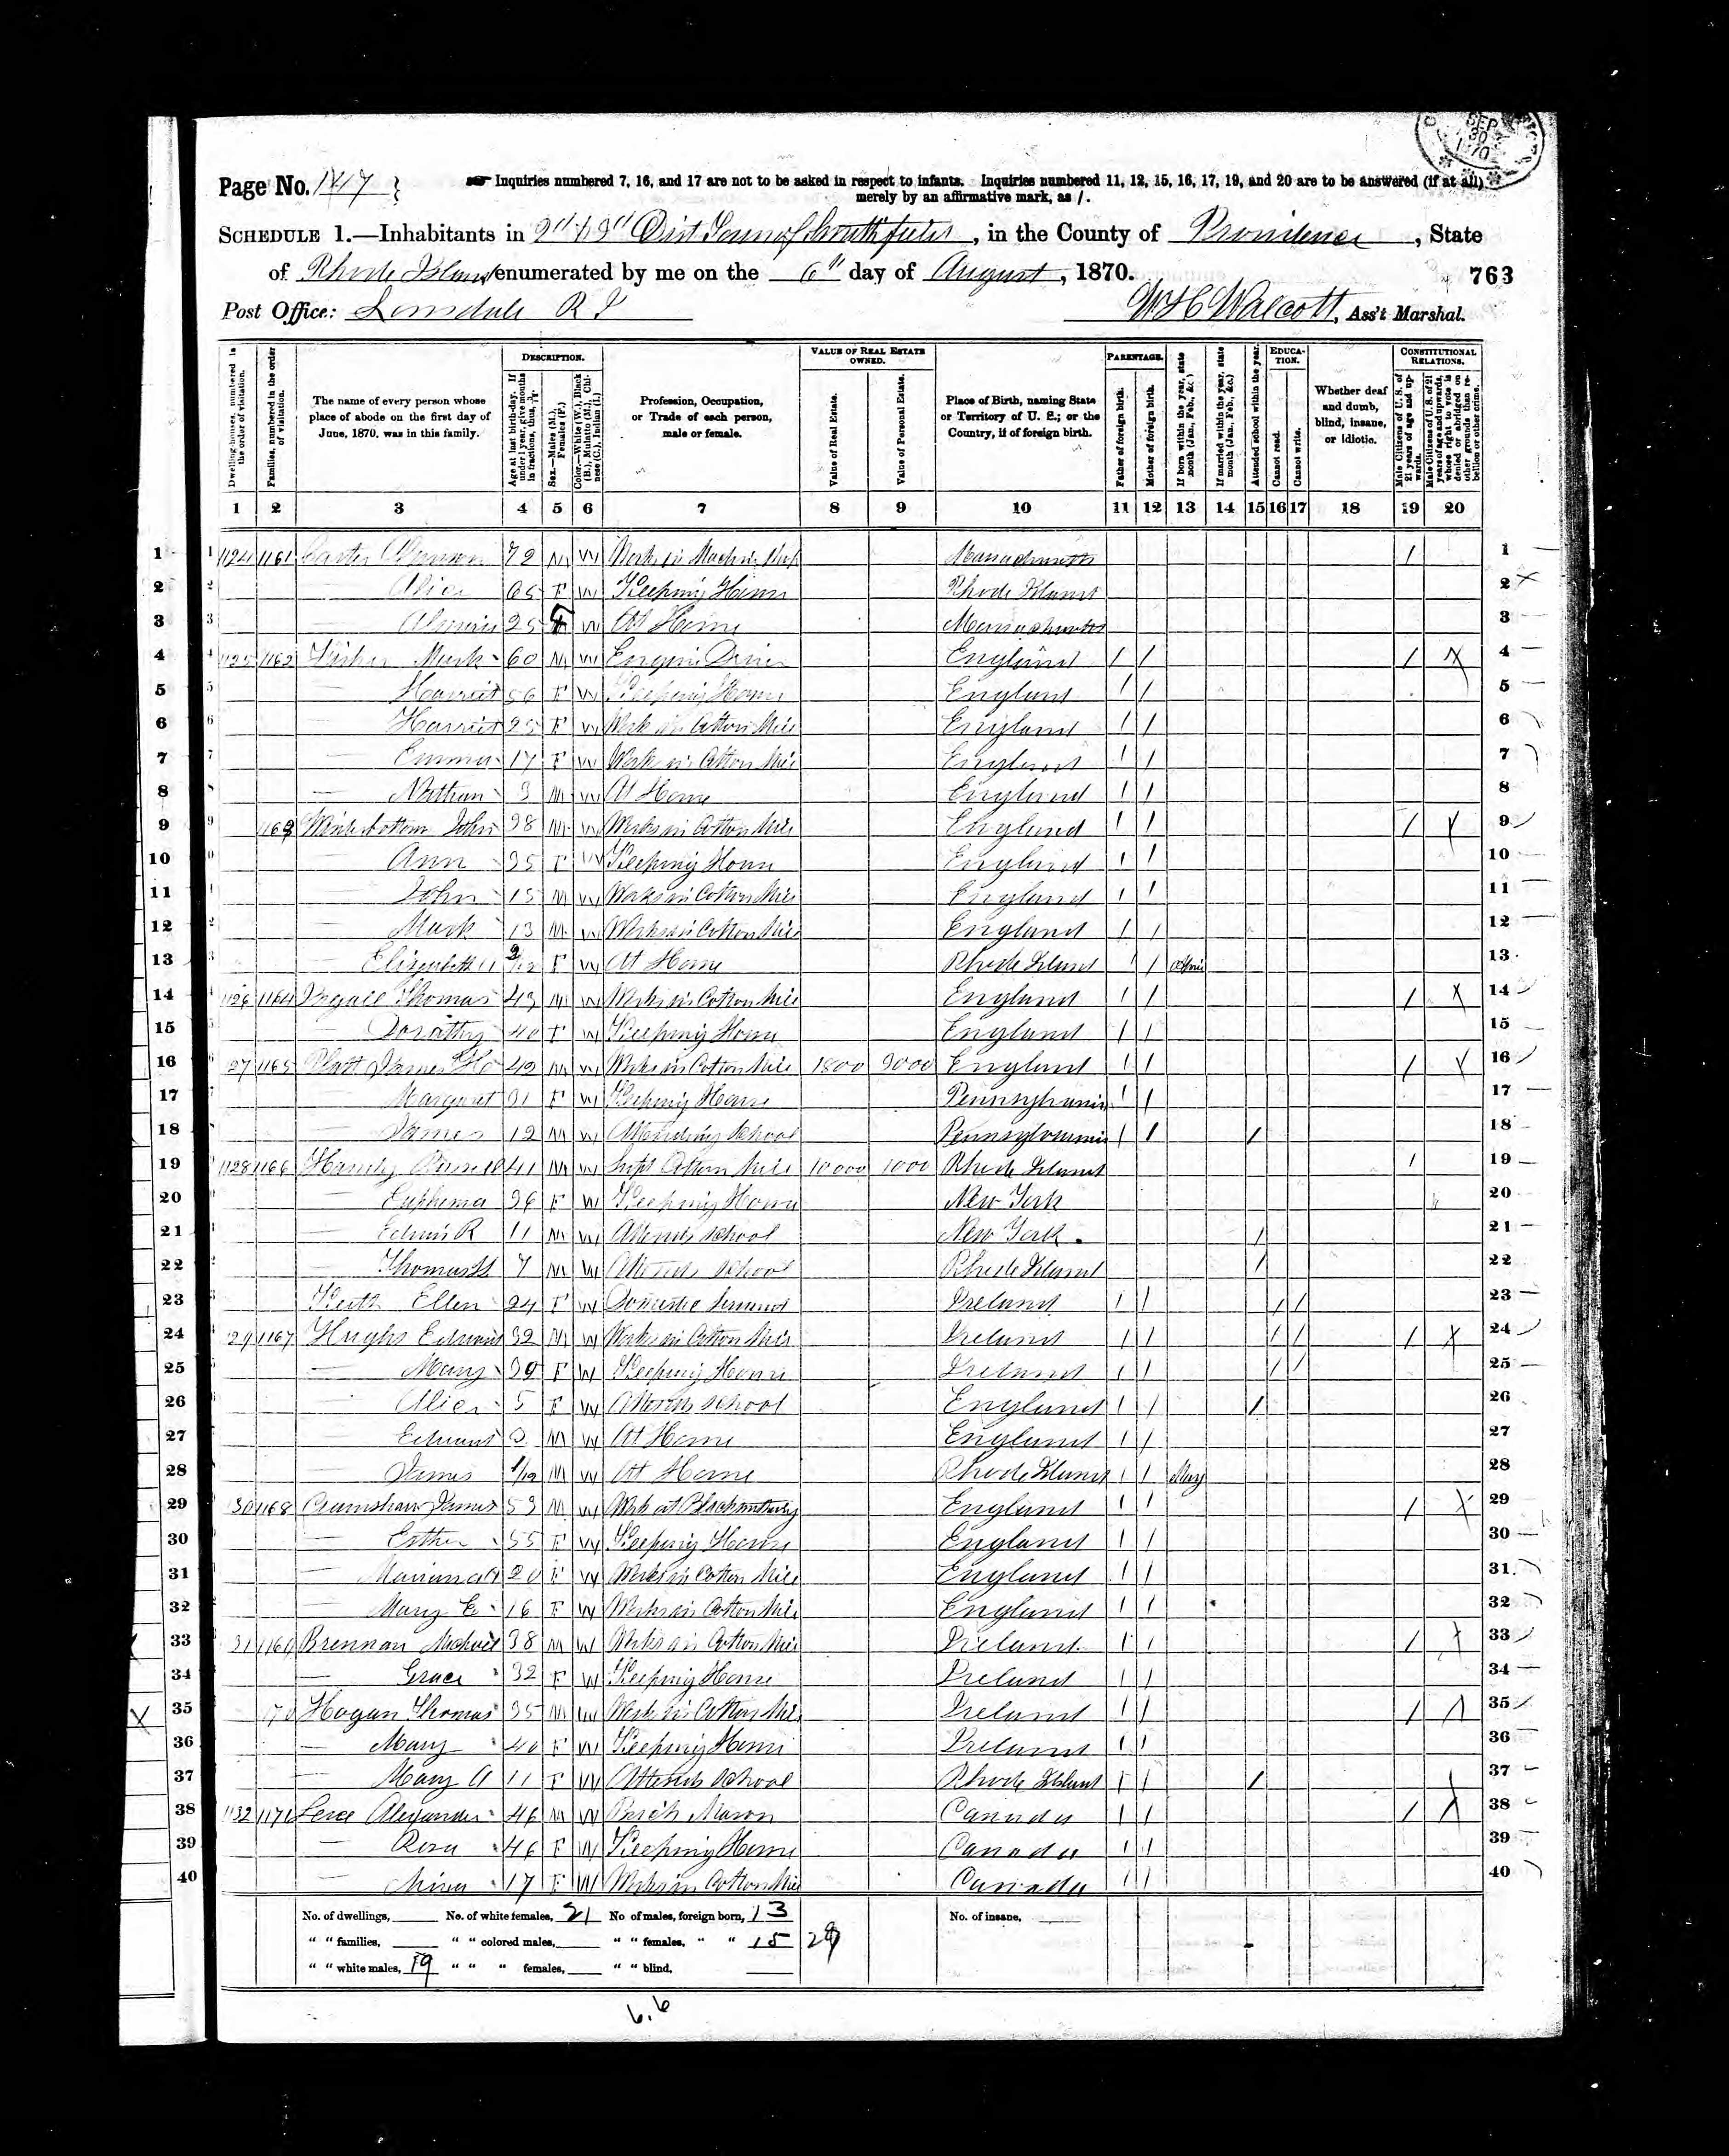 SEP 30 1870
Page No. 147
Inquiries numbered 7, 16, and 17 are not to be asked in respect to infants. Inquiries numbered 11, 12, 15, 16, 17, 19, and 20 are to be answered (if at all)
merely by an affirmative mark, as /.
SCHEDULE 1.—Inhabitants in Dist Town of Smithfield, in the County of Providence, State
of Rhode Island enumerated by me on the 6th day of August, 1870.
763
Post Office: Lonsdale R I
W H Walcott, Ass't Marshal.
Dwelling-houses, numbered in the order of visitation.
Families, numbered in the order of visitation.
The name of every person whose place of abode on the first day of June, 1870, was in this family.
DESCRIPTION.
Age at last birth-day. If under 1 year, give months in fractions, thus,
Sex.—Males (M.), Females (F.)
Color.—White (W.), Black (B.), Mulatto (M.), Chinese (C.), Indian (I.)
Profession, Occupation, or Trade of each person, male or female.
VALUE OF REAL ESTATE OWNED.
Value of Real Estate.
Value of Personal Estate.
Place of Birth, naming State or Territory of U. S.; or the Country, if of foreign birth.
PARENTAGE.
Father of foreign birth.
Mother of foreign birth.
If born within the year, state month (Jan., Feb., &c.)
If married within the year, state month (Jan., Feb., &c.)
Attended school within the year.
EDUCATION.
Cannot read.
Cannot write.
Whether deaf and dumb, blind, insane, or idiotic.
CONSTITUTIONAL RELATIONS.
Male Citizens of U. S. of 21 years of age and upwards.
Male Citizens of U. S. of 21 years of age and upwards, whose right to vote is denied or abridged on other grounds than rebellion or other crime.
1 2 3 4 5 6 7 8 9 10 11 12 13 14 15 16 17 18 19 20
1 1124 1161 72 M W Works in Machine Shop Massachusetts / 1
2 Alice 65 F W Keeping House Rhode Island 2
3 25 F W At Home Massachusetts 3
4 1125 1162 Mark 60 M W Engine Driver England / / / X 4
5 Harriet 56 F W Keeping House England / / 5
6 Harriet 25 F W Work in Cotton Mill England / / 6
7 Emma 17 F W Work in Cotton Mill England / / 7
8 Nathan 3 M W At Home England / / 8
9 1163 Winterbottom John 38 M W Works in Cotton Mill England / / / X 9
10 Ann 35 F W Keeping House England / / 10
11 John 15 M W Works in Cotton Mill England / / 11
12 Mark 13 M W Works in Cotton Mill England / / 12
13 Elizabeth A 2/12 F W At Home Rhode Island / / April 13
14 1126 1164 Thomas 43 M W Works in Cotton Mill England / / / X 14
15 Dorothy 40 F W Keeping House England / / 15
16 27 1165 Platt James 42 M W Works in Cotton Mill 1800 England / / / X 16
17 Margaret 31 F W Keeping House Pennsylvania / / 17
18 James 12 M W Attending School Pennsylvania / / / 18
19 1128 1166 Handy 41 M W Supt Cotton Mill 10000 1000 Rhode Island / 19
20 Euphema 36 F W Keeping House New York 20
21 Edwin R 11 M W Attends School New York / 21
22 Thomas 7 M W Attends School Rhode Island / 22
23 Keith Ellen 24 F W Domestic Servant Ireland / / / / 23
24 29 1167 Hughs Edward 32 M W Works in Cotton Mill Ireland / / / / / X 24
25 Mary 30 F W Keeping House Ireland / / / / 25
26 Alice 5 F W Attends School England / / / 26
27 Edward 3 M W At Home England / / 27
28 James 1/12 M W At Home Rhode Island / / May 28
29 30 1168 Crumshaw James 53 M W Work at Blacksmithing England / / / X 29
30 Esther 55 F W Keeping House England / / 30
31 20 F W Works in Cotton Mill England / / 31
32 Mary E 16 F W Works in Cotton Mill England / / 32
33 31 1169 Brennan Michael 38 M W Works in Cotton Mill Ireland / / / X 33
34 Grace 32 F W Keeping House Ireland / / 34
35 70 Hogan Thomas 35 M W Work in Cotton Mill Ireland / / / X 35
36 Mary 40 F W Keeping House Ireland / / 36
37 Mary A 11 F W Attends School Rhode Island / / / 37
38 1132 1171 Alexander 46 M W Brick Mason Canada / / / X 38
39 Rosa 46 F W Keeping House Canada / / 39
40 17 F W Works in Cotton Mill Canada / / 40
No. of dwellings, No. of white females, 21 No of males, foreign born, 13 No. of insane,
" " families, " " colored males, " " females, " " 15 28
" " white males, 19 " " " females, " " blind,
6.6